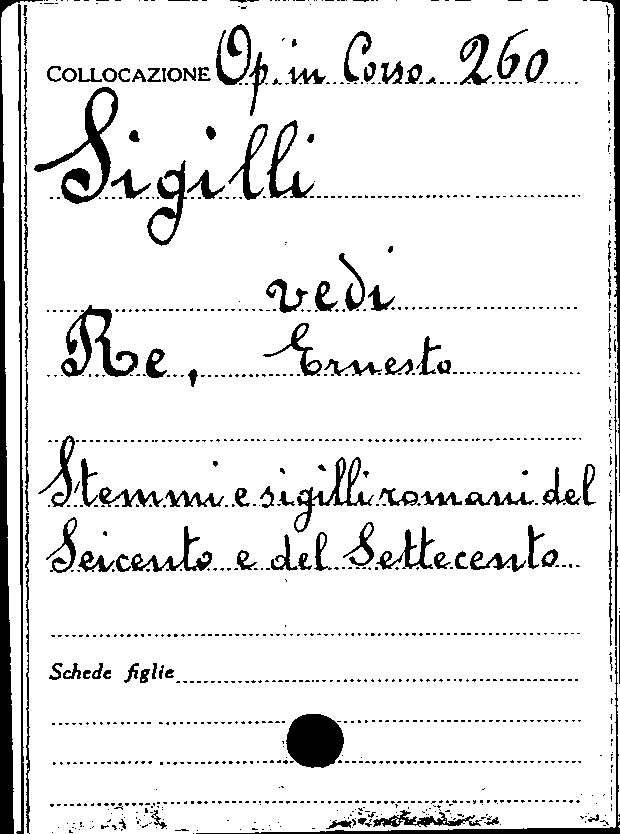 COLLOCAZIONE Op. in Corso. 260
Sigilli
vedi
Re, Ernesto
Stemmi e sigilli romani del
Seicento e del Settecento
Schede figlie